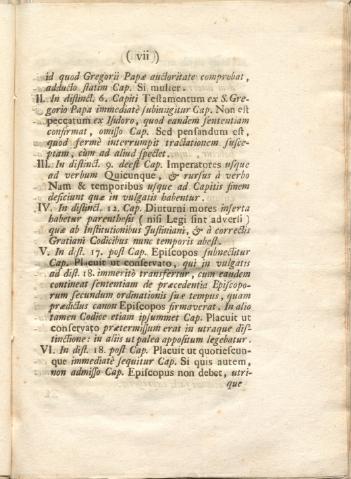 ( vij )
id quod Gregorii Papæ auctoritate comprobat,
adducto statim Cap. Si mulier.
II. In distinct. 6. Capiti Testamentum ex S. Gre-
gorio Papa immediatè subjungitur Cap. Non est
peccatum ex Isidoro, quod eandem sententiam
confirmat, omisso Cap. Sed pensandum est,
quod fermè interrumpit tractationem susce-
ptam, cùm ad aliud spectet.
III. In distinct. 9. deest Cap. Imperatores usque
ad verbum Quicunque, & rursus à verbo
Nam & temporibus usque ad Capitis finem
desiciunt quæ in vulgatis habentur.
IV. In distinct. 12. Cap. Diuturni mores inserta
habetur parenthesis ( nisi Legi sint adversi )
quæ ab Institutionibus Justiniani, & à correctis
Gratiani Codicibus nunc temporis abest.
V. In dist. 17. post Cap. Episcopos subnectitur
Cap. Placuit ut conservato, qui in vulgatis
ad dist. 18. immeritò transfertur, cum eandem
contineat sententiam de præcedentia Episcopo-
rum secundum ordinationis suæ tempus, quam
prædictus canon Episcopos firmaverat. In alio
tamen Codice etiam ipsummet Cap. Placuit ut
conservato prætermissum erat in utraque dis-
tinctione: in aliis ut palea appositum legebatur.
VI. In dist. 18. post Cap. Placuit ut quotiescun-
que immediatè sequitur Cap. Si quis autem,
non admisso Cap. Episcopus non debet, utri-
que